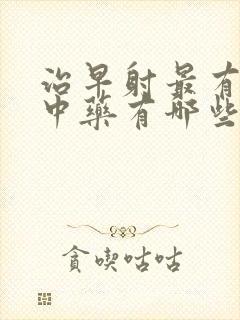 治早射最有
中藥有哪些
貪喫咕咕